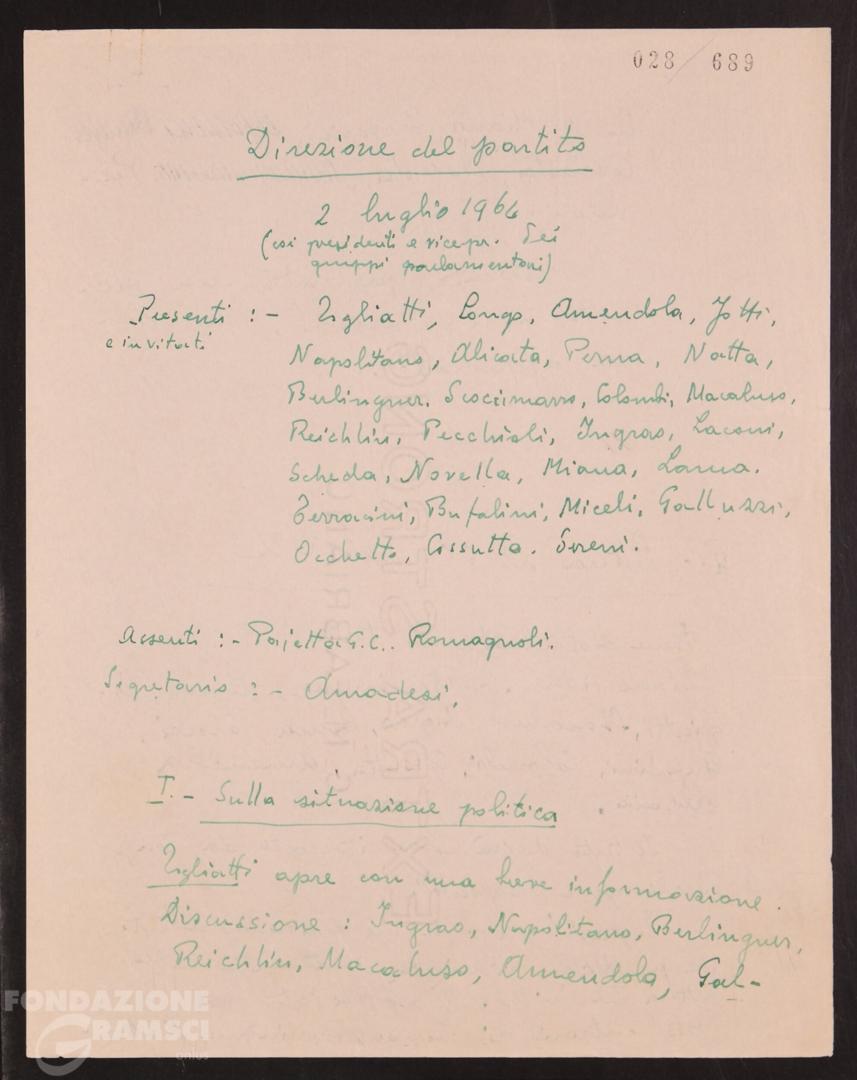 028 / 689
Direzione del partito
2 luglio 1964
(coi presidenti e vicepr. dei
gruppi parlamentari)
Presenti :- Togliatti, Longo, Amendola, Jotti,
e invitati
Napolitano, Alicata, Perna, Natta,
Berlinguer. Scoccimarro, Colombi, Macaluso,
Reichlin, Pecchioli, Ingrao, Laconi,
Scheda, Novella, Miana, Lama.
Terracini, Bufalini, Miceli, Galluzzi,
Occhetto, Cossutta. Sereni.
Assenti :- Pajetta G.C.. Romagnoli.
Segretario :- Amadesi,
I.- Sulla situazione politica
Togliatti apre con una breve informazione.
Discussione : Ingrao, Napolitano, Berlinguer,
Reichlin, Macaluso, Amendola, Gal-
FONDAZIONE
GRAMSCI
onlus